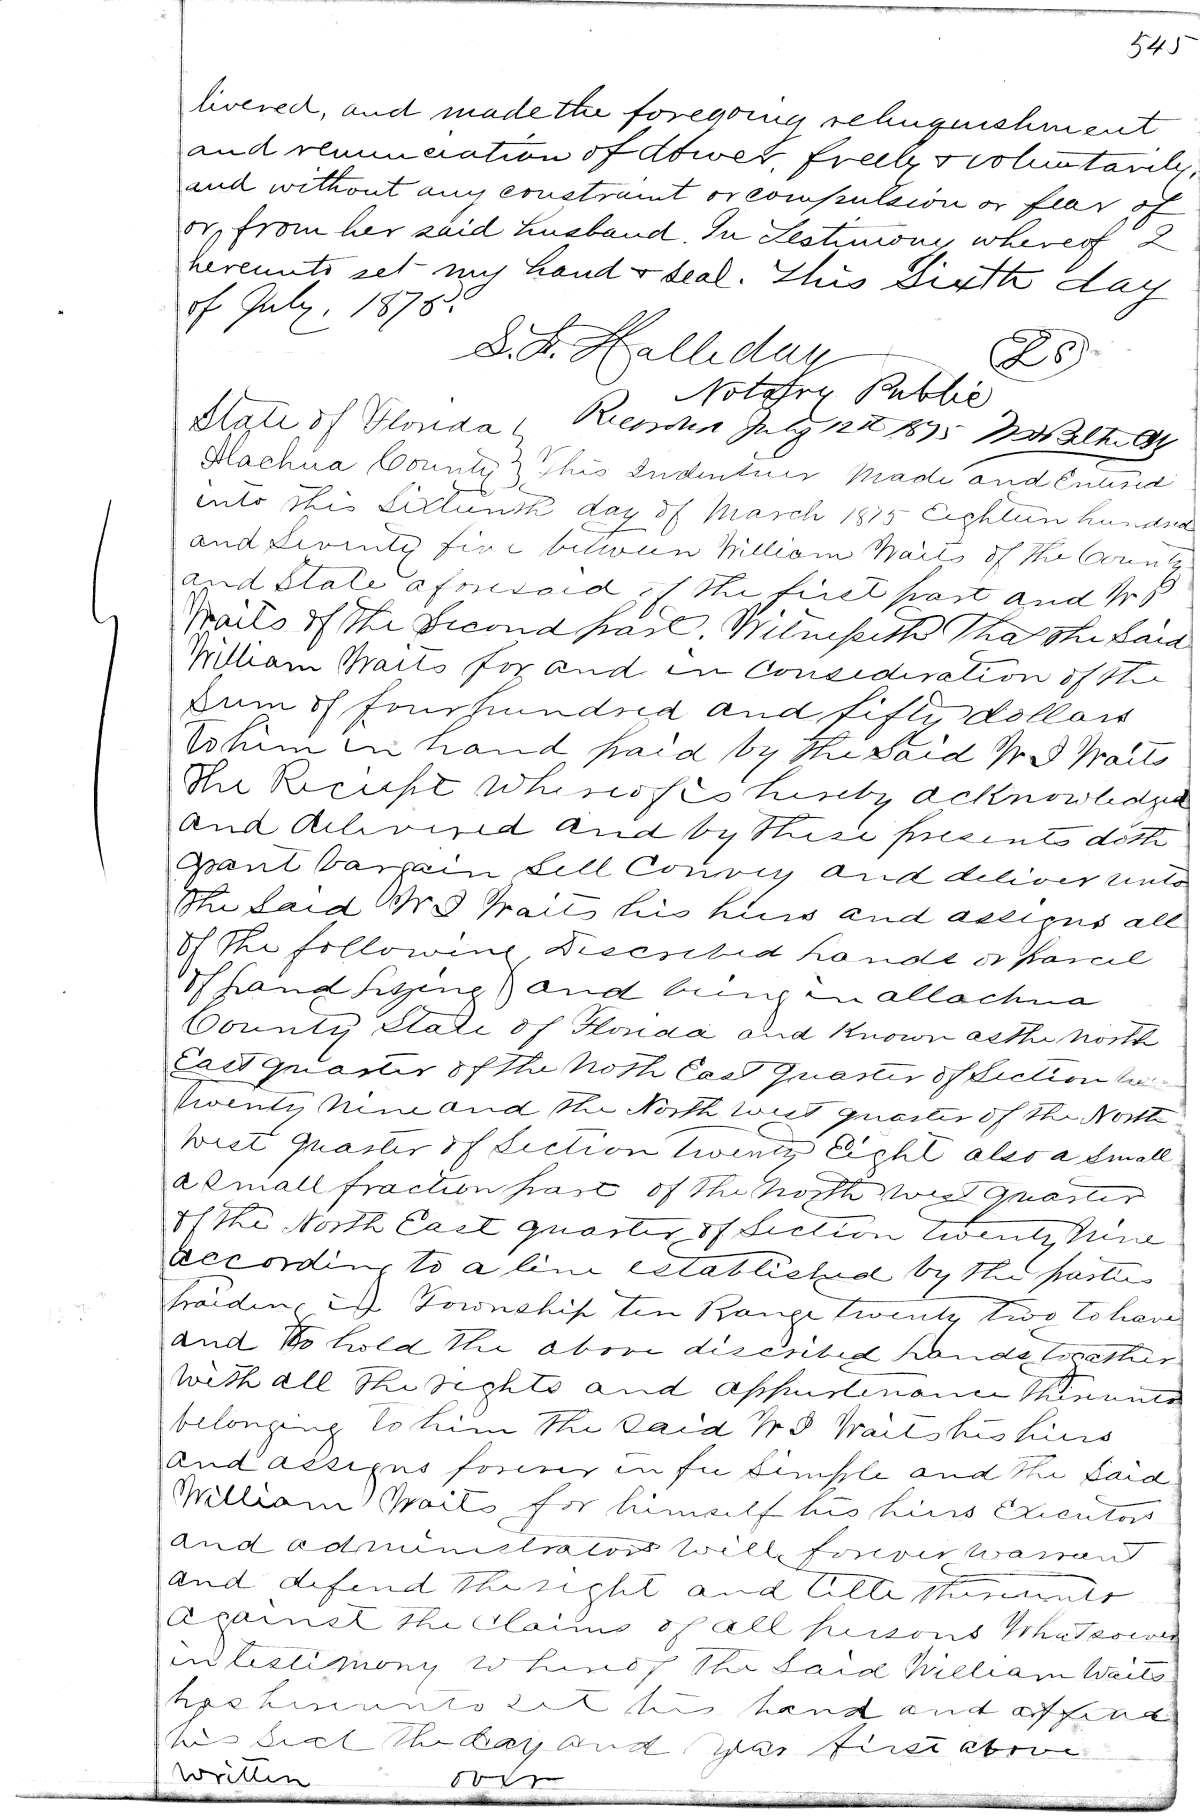 545
livered, and made the foregoing relinquishment
and renunciation of dower, freely & voluntarily,
and without any constraint or compulsion or fear of
or, from her said husband. In Testimony whereof I
hereunto set my hand & seal. This Sixth day
of July, 1875.
S. F. Halliday LS
Notary Public
State of Florida } Recorded July 12th 1875
Alachua County } This Indenture Made and Entered
into this Sixteenth day of March 1875 Eighteen hundred
and Seventy five between William Waits of the County
and State aforesaid of the first part and W J
Waits of the Second part. Witnesseth That the Said
William Waits for and in consideration of the
Sum of four hundred and fifty dollars
to him in hand paid by the Said W J Waits
the Reciept Whereof is hereby acknowledged
and delivered and by these presents doth
grant bargain Sell Convey and deliver unto
the Said W J Waits his heirs and assigns all
of the following Discribed Lands or parcel
of Land Lying and being in allachua
County State of Florida and Known as the North
East quarter of the Noth East quarter of Section
twenty Nine and the North West quarter of the North
West quarter of Section Twenty Eight also a Small
a Small fraction part of the North West quarter
of the North East quarter of Section twenty Nine
according to a line established by the parties
traiding in Township ten Range twenty two to have
and to hold the above discribed Lands together
With all the rights and appurtenance thereunto
belonging to him the Said W J Waits his heirs
and assigns forever in fee Simple and the Said
William Waits for himself his heirs Executors
and administrators Will forever warrant
and defend the right and title thereunto
against the Claims of all persons Whatsoever
in testimony whereof the Said William Waits
has hereunto set his hand and affixed
his Seal the day and year first above
written over